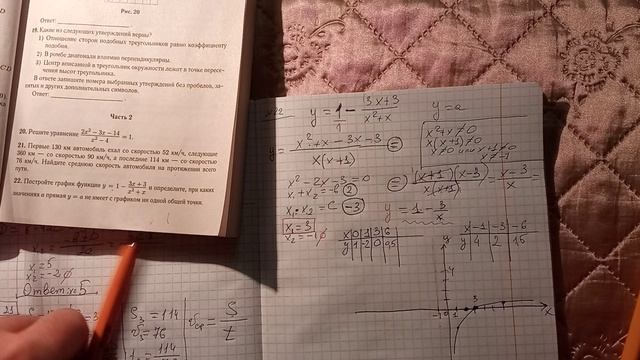 Рис. 20
Ответ:
19. Какие из следующих утверждений верны?
1) Отношение сторон подобных треугольников равно коэффициенту
подобия.
2) В ромбе диагонали взаимно перпендикулярны.
3) Центр вписанной в треугольник окружности лежит в точке пересе-
чения высот треугольника.
В ответе запишите номера выбранных утверждений без пробелов, за-
пятых и других дополнительных символов.
Ответ:
Часть 2
20. Решите уравнение (2x² − 3x − 14)/(x² − 4) = 1.
21. Первые 130 км автомобиль ехал со скоростью 52 км/ч, следующие
360 км — со скоростью 90 км/ч, а последние 114 км — со скоростью
76 км/ч. Найдите среднюю скорость автомобиля на протяжении всего
пути.
22. Постройте график функции y = 1 − (3x + 3)/(x² + x) и определите, при каких
значениях a прямая y = a не имеет с графиком ни одной общей точки.
x₁ = 5
x₂ = -2 ∅
Ответ: x=5
S₃ = 114
v₃ = 76
vср = S/t
№22 y = 1/1 − (3x+3)/(x²+x) y = a
y = (x²+x−3x−3)/(x(x+1)) =
x²+x≠0
x(x+1)≠0
x≠0 или x+1≠0
x≠-1
x²−2x−3=0
= ((x+1)(x−3))/(x(x+1)) = (x−3)/x =
x₁·x₂ = c -3
y = 1 − 3/x
x₁ = 3
x₂ = -1 ∅
x 0 1 3 6
y 1 -2 0 0,5
x -1 -3 -6
y 4 2 1,5
y
4
3
x